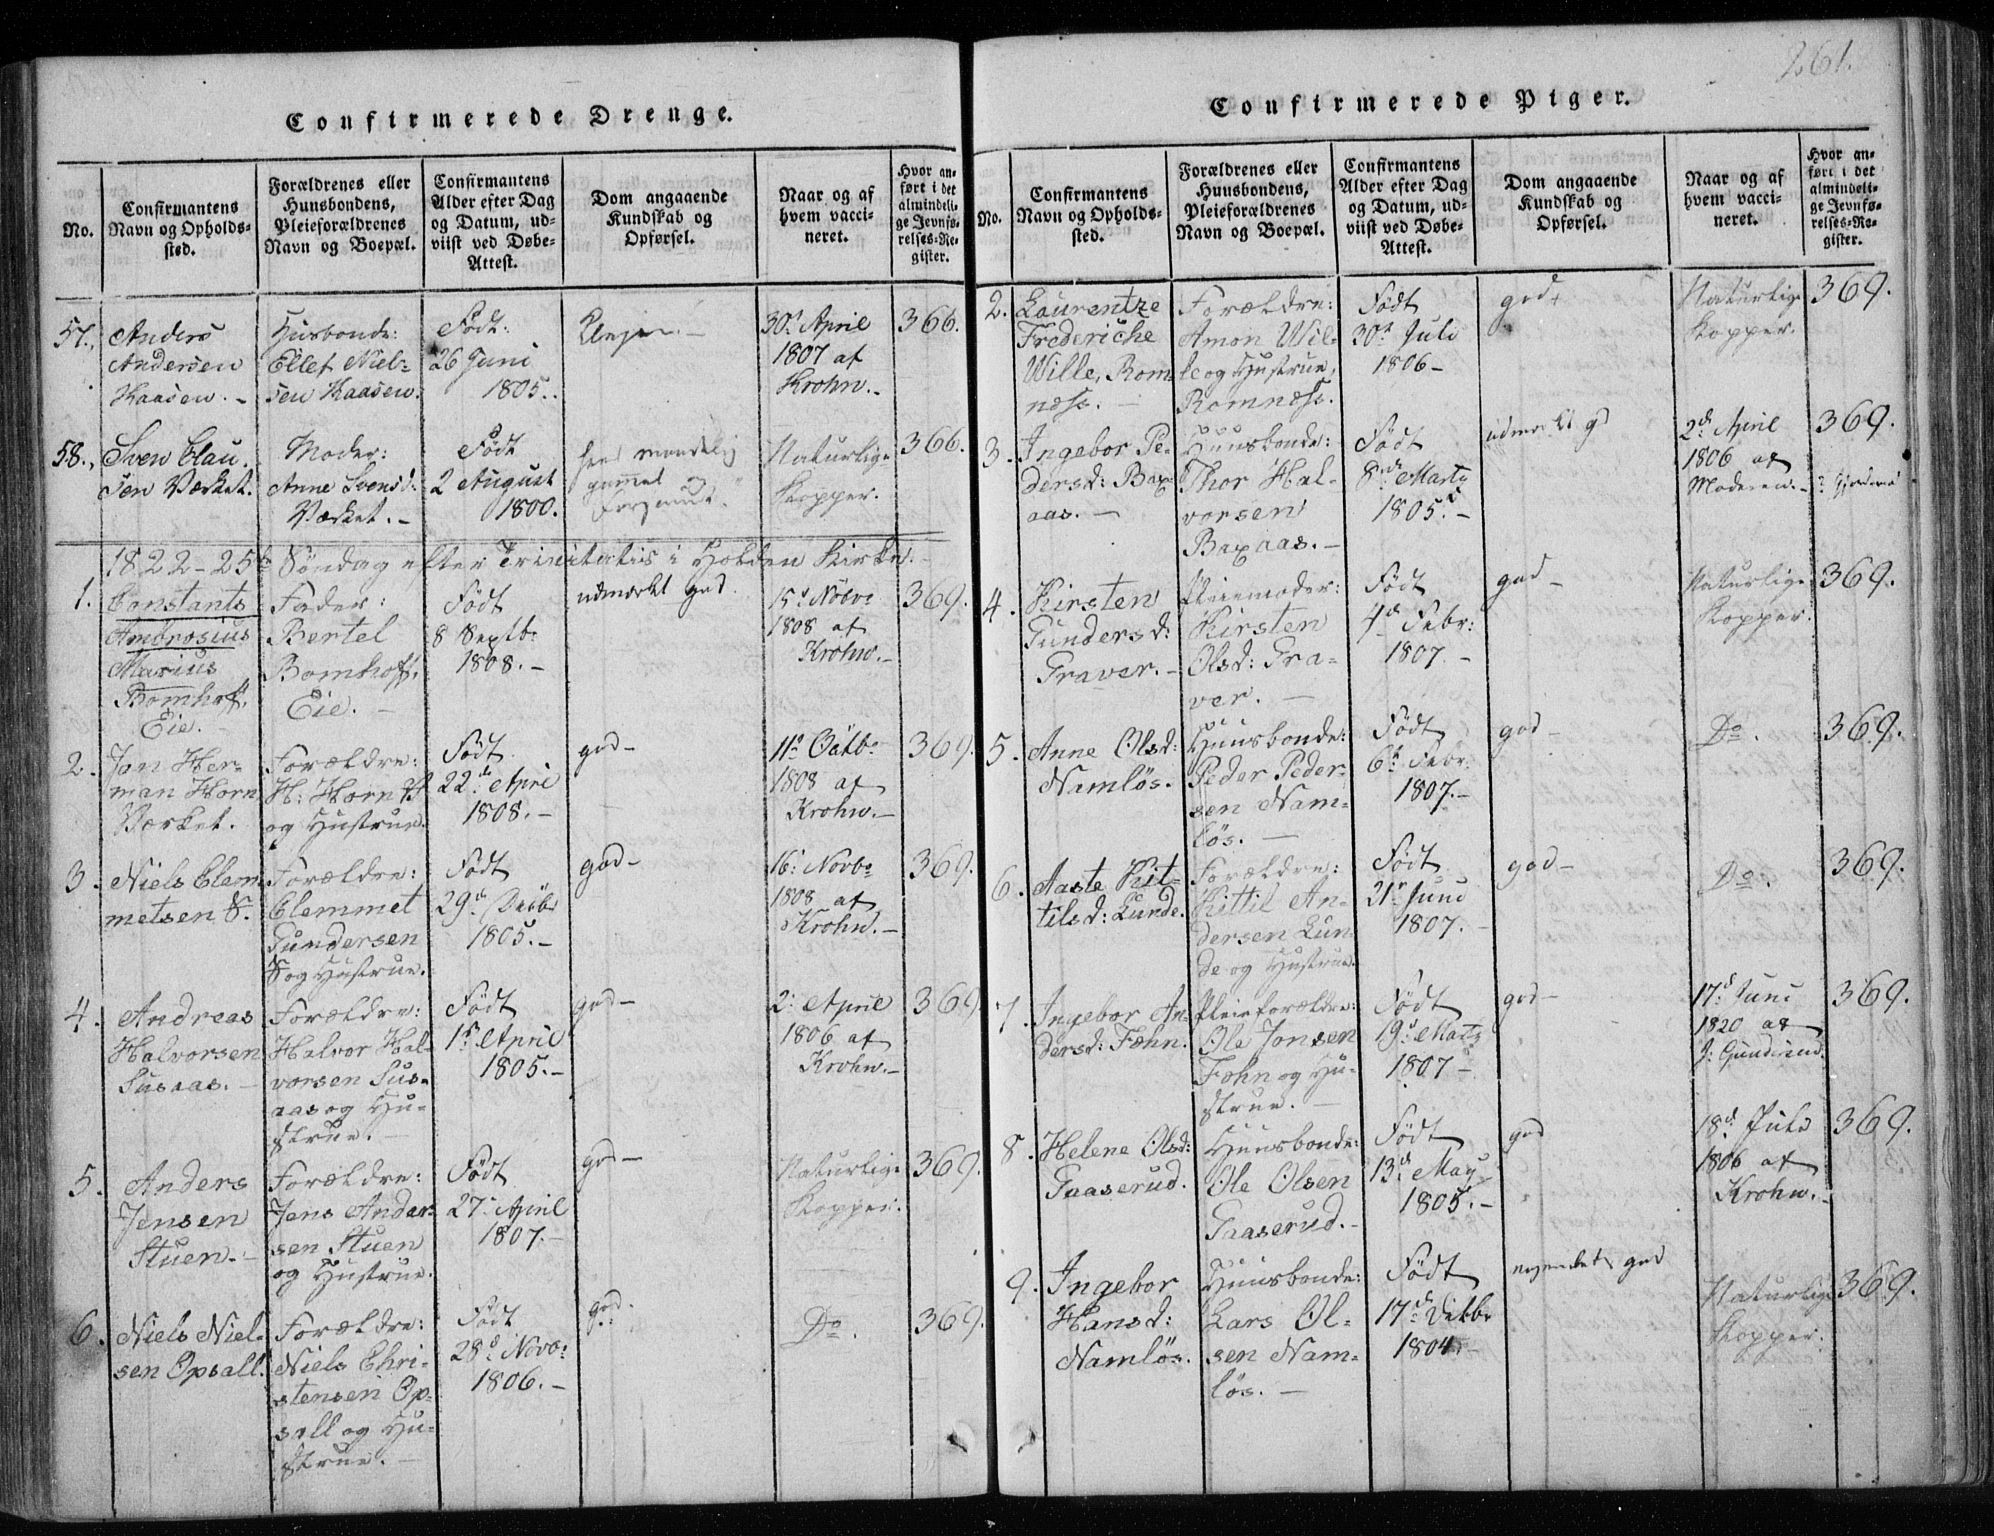 261.
Confirmerede Drenge.
No.
Confirmantens
Navn og Opholds-
sted.
Forældrenes eller
Huusbondens,
Pleieforældrenes
Navn og Boepæl.
Confirmantens
Alder efter Dag
og Datum, ud-
viist ved Døbe-
Attest.
Dom angaaende
Kundskab og
Opførsel.
Naar og af
hvem vacci-
neret.
Hvor an-
ført i det
almindeli-
ge Jevnfø-
relses-Re-
gister.
57.
Anders
Andersen
Kaasen. -
Husbonde:
Ellef Niel-
sen Kaasen.
Født:
26 Juni
1805.
30t April
1807 af
Krohn. -
366.
58.
Sven Clau-
sen Værket.
Moder:
Anne Svensd:
Værket. -
Født
2 August
1800.
gammel og
Naturlige
Kopper.
366.
1822 - 25de Søndag efter Trinitatis i Holden Kirke. -
1.
Constants
Ambrosius
Marius
Bomhoff.
Eie. -
Fader:
Bertel
Bomhoff.
Eie. -
Født
8 Septb:
1808. -
udmærket god.
15d Novbr
1808 af
Krohn. -
369.
2.
Jan Her-
man Horn
Værket.
Forældre:
H: Horn
og Hustrue.
Født
22de April
1808. -
god -
11te Octbr
1808 af
Krohn. -
369.
3.
Niels Clem-
metsen S.
Forældre:
Clemmet
Gundersen
S og Hustrue.
Født
29de Decbr
1805. -
god -
16: Novbr
1808 af
Krohn. -
369.
4.
Andreas
Halvorsen
Susaas. -
Forældre:
Halvor Hal-
vorsen Sus-
aas og Hu-
strue. -
Født
1ste April
1805. -
god -
2: April
1806 af
Krohn. -
369.
5.
Anders
Jensen
Stuen. -
Forældre:
Jens Ander-
sen Stuen
og Hustrue.
Født
27: April
1807. -
god -
Naturlige
Kopper.
369.
6.
Niels Niel-
sen Opsall.
Forældre:
Niels Chri-
stensen Op-
sall og Hu-
strue. -
Født
28d Novbr:
1806. -
god.
Do.
369.
Confirmerede Piger.
No.
Confirmantens
Navn og Opholds-
sted.
Forældrenes eller
Huusbondens,
Pleieforældrenes
Navn og Boepæl.
Confirmantens
Alder efter Dag
og Datum, ud-
viist ved Døbe-
Attest.
Dom angaaende
Kundskab og
Opførsel.
Naar og af
hvem vacci-
neret.
Hvor an-
ført i det
almindeli-
ge Jevnfø-
relses-Re-
gister.
2.
Laurentze
Frederiche
Wille, Rom-
næss. -
Forældre:
Amon Wil-
le og Hustrue,
Romnæss.
Født
30te Juli
1806 -
god
Naturlige
Kopper.
369.
3.
Ingebor Pe-
dersd: Bax-
aas. -
Huusbonde:
Thor Hal-
vorsen
Baxaas. -
Født
8de Martz
1805. -
udmærket
2de April
1806 af
Moderen. -
369.
4.
Kirsten
Gundersd:
Graver. -
Pleiemoder:
Kirsten
Olsd: Gra-
ver. -
Født
4de Febr:
1807. -
god -
Naturlige
Kopper.
369.
5.
Anne Olsd:
Namløs. -
Huusbonde:
Peder Peder-
sen Nam-
løs. -
Født
6te Febr:
1807. -
god -
Do.
369.
6.
Aaste Kit-
tilsd: Lunde.
Forældre:
Kittil An-
dersen Lun-
de og Hustrue.
Født
21de Juni
1807. -
god -
Do.
369.
7.
Ingebor An-
dersd: Fæhn.
Pleieforældre:
Ole Jonsen
Fæhn og Hu-
strue. -
Født
19d Matz
1807 -
god -
17d Juni
1820 af
369.
8.
Helene Olsd:
Gaaserud.
Huusbonde:
Ole Olsen
Gaaserud. -
Født
13de May
1805. -
god
18de Juli
1806 af
Krohn. -
369.
9.
Ingebor
Hansd:
Namløs.
Huusbonde:
Lars Ol-
sen Nam-
løs. -
Født
17de
1804. -
god
Naturlige
Kopper.
369.